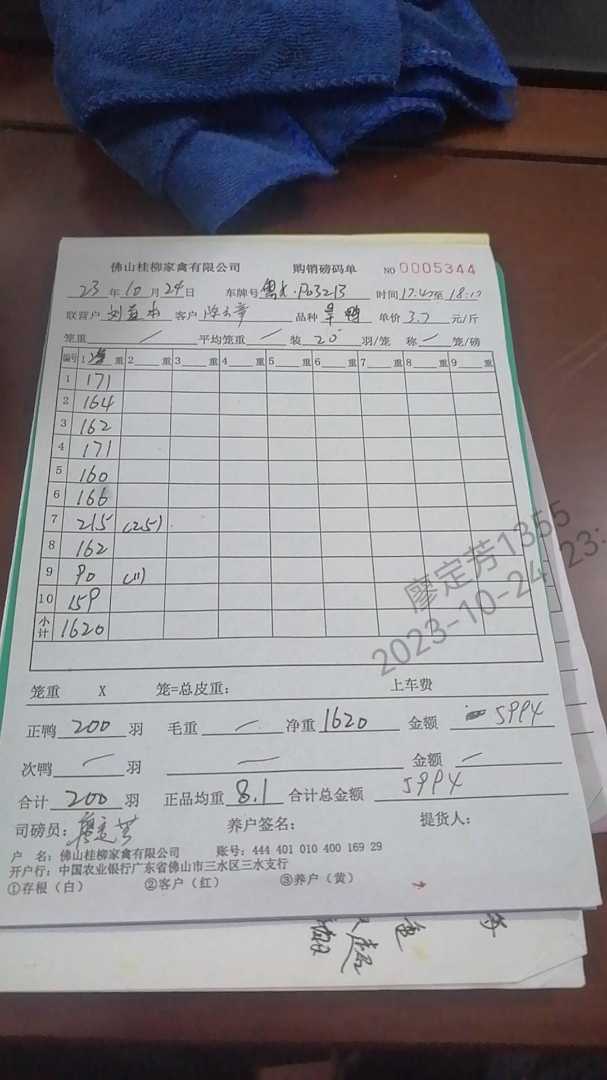 佛山桂柳家禽有限公司 购销磅码单 NO 0005344
23 年 10 月 24 日 车牌号 时间 17.47至 18:17
联营户 客户 品种 旱鸭 单价 3.7 元/斤
笼重 / 平均笼重 / 装 20 羽/笼 称 / 笼/磅
编号 1 重 2 重 3 重 4 重 5 重 6 重 7 重 8 重 9 重
1 171
2 164
3 162
4 171
5 160
6 166
7 215 (25)
8 162
9 90 (11)
10 159
小计 1620
笼重 X 笼=总皮重: 上车费
正鸭 200 羽 毛重 / 净重 1620 金额 5994
次鸭 / 羽 / 金额 /
合计 200 羽 正品均重 8.1 合计总金额 5994
司磅员: 廖定芳 养户签名: 提货人:
户 名: 佛山桂柳家禽有限公司 账号: 444 401 010 400 169 29
开户行: 中国农业银行广东省佛山市三水区三水支行
①存根(白) ②客户(红) ③养户(黄)
廖定芳1355
2023-10-24 23: